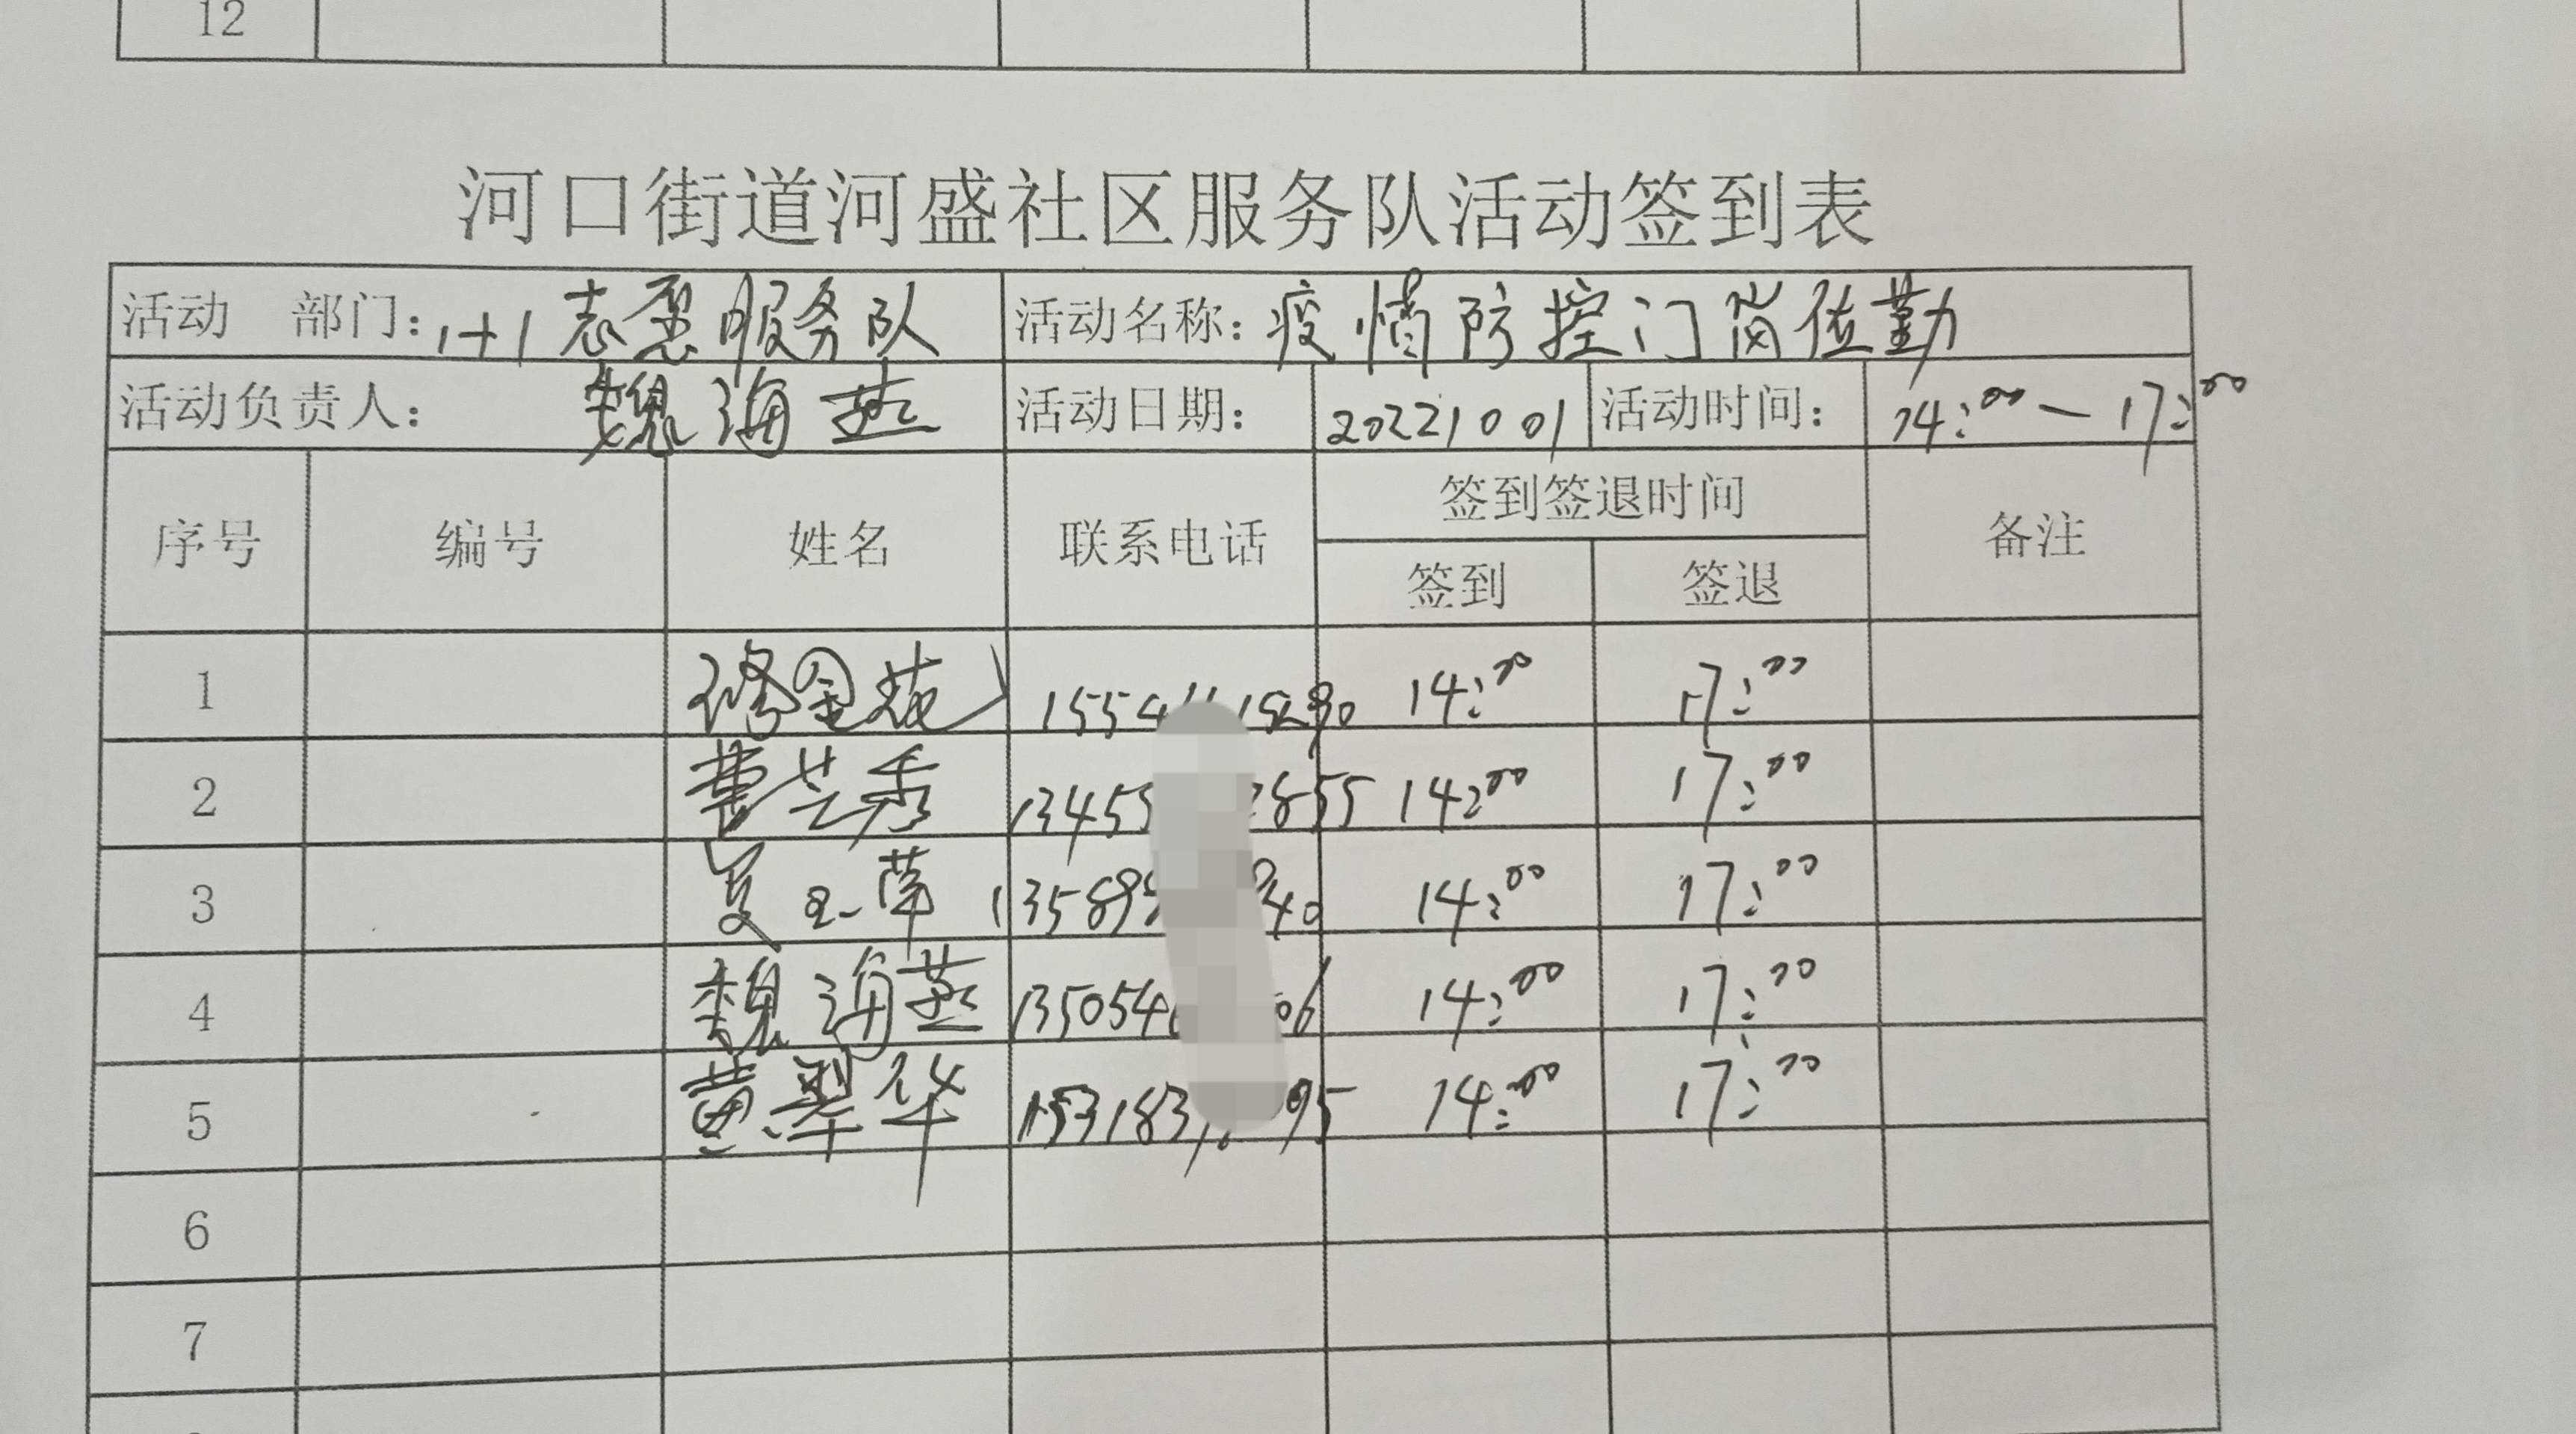 12
河口街道河盛社区服务队活动签到表
活动 部门: 1+1志愿服务队 活动名称: 疫情防控门岗值勤
活动负责人: 魏海燕 活动日期: 20221001 活动时间: 14:00-17:00
序号 编号 姓名 联系电话 签到签退时间 备注
签到 签退
1 14:00 17:00
2 曹兰秀 14:00 17:00
3 14:00 17:00
4 魏海燕 14:00 17:00
5 黄翠华 14:00 17:00
6
7